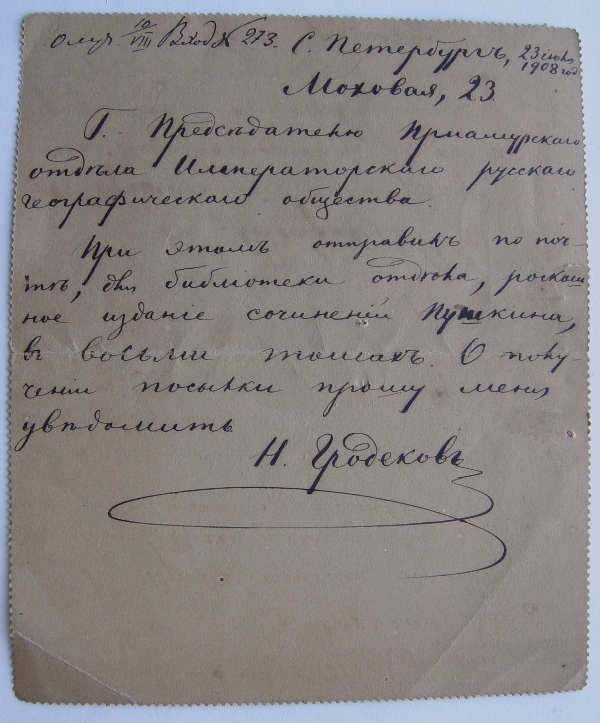 Получ. 10/VIII Вход № 273. С. Петербургъ, 23 іюня
1908 год
Моховая, 23
Г. Предсѣдателю Приамурскаго
отдѣла Императорскаго русскаго
географическаго общества.
При этомъ отправилъ по поч-
тѣ, для библіотеки отдѣла, роскош
ное изданіе сочиненій Пушкина,
въ восьми томахъ. О полу-
ченіи посылки прошу меня
увѣдомить
Н. Гродековъ